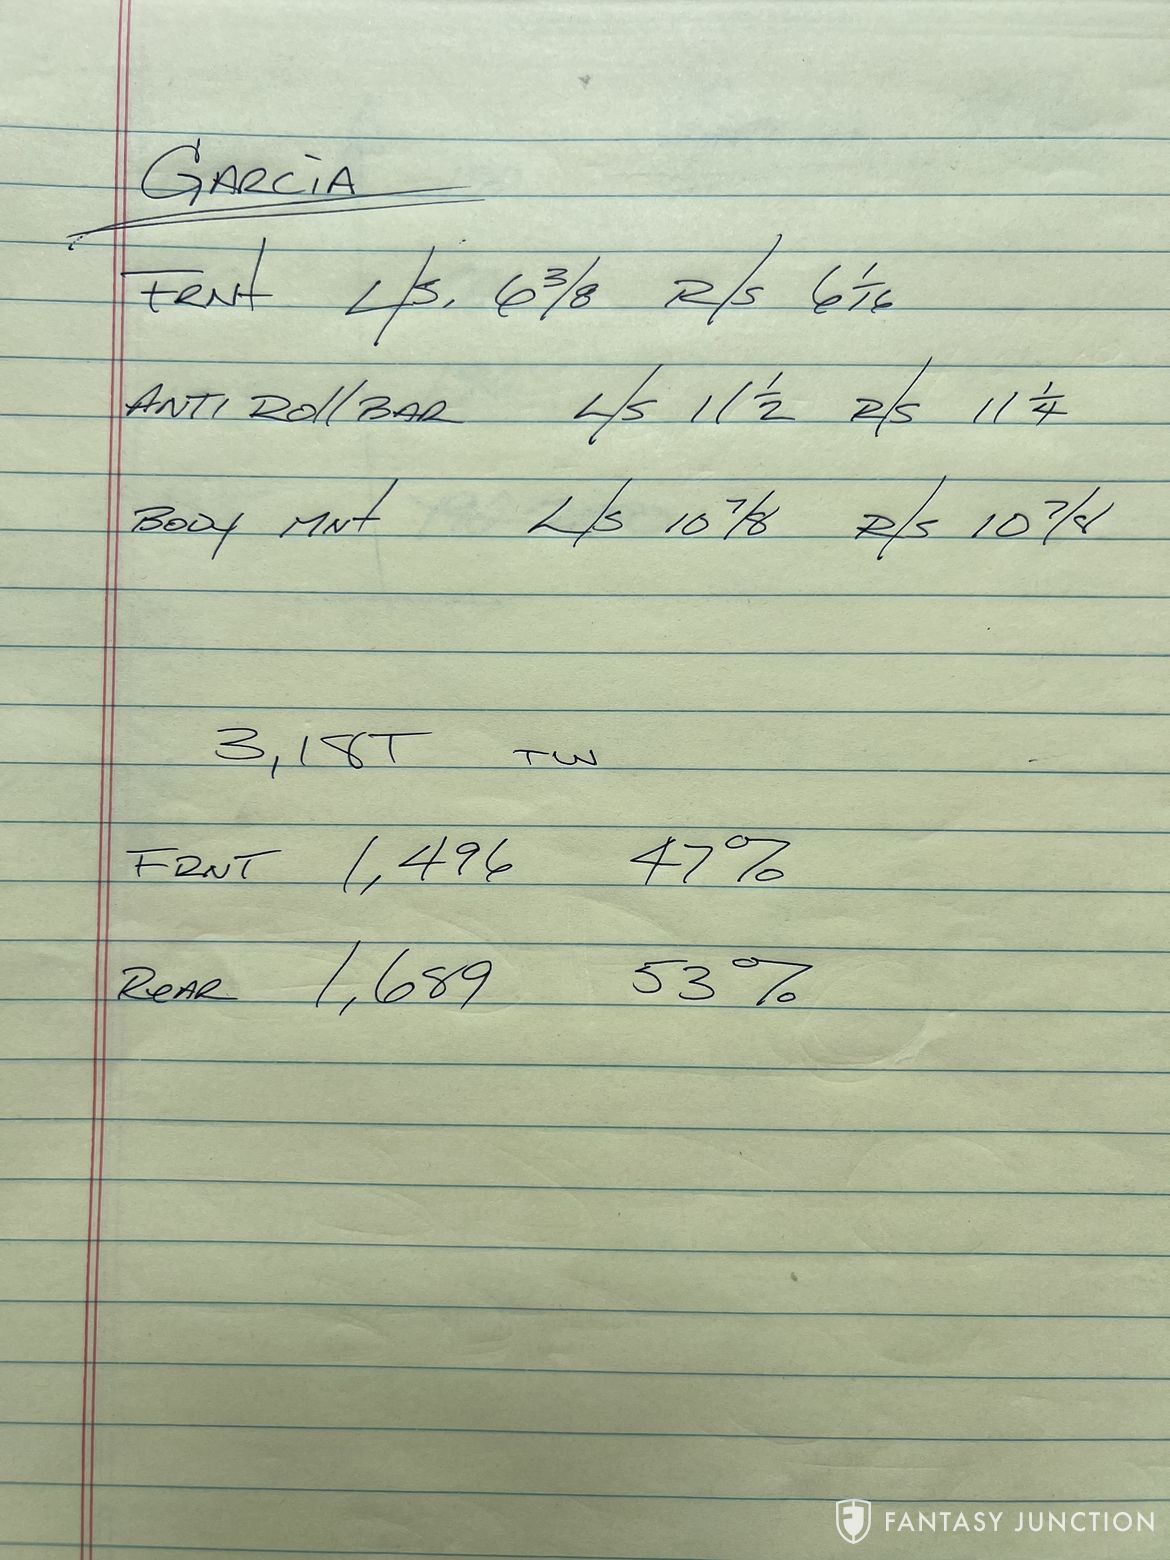 GARCIA
FRNT L/S. 6 3/8 R/S 6 1/16
ANTI ROll BAR L/S 11 1/2 R/S 11 1/4
BODY MNT L/S 10 7/8 R/S 10 7/8
3,185 TW
FRNT 1,496 47%
ReAR 1,689 53%
FANTASY JUNCTION